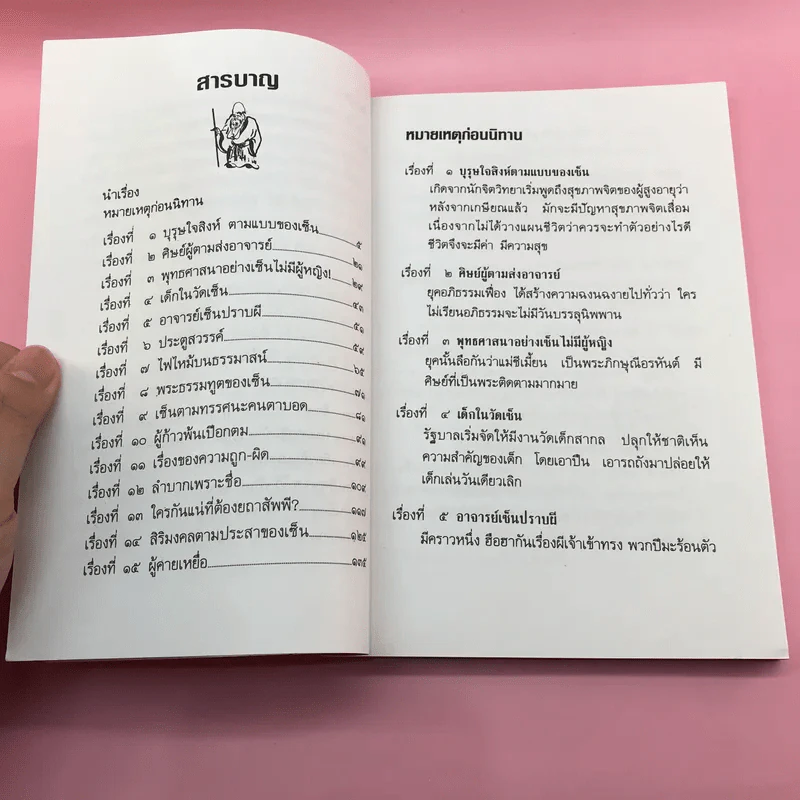 สารบาญ
นำเรื่อง
หมายเหตุก่อนนิทาน
เรื่องที่ ๑ บุรุษใจสิงห์ ตามแบบของเซ็น ๕
เรื่องที่ ๒ ศิษย์ผู้ตามส่งอาจารย์ ๒๑
เรื่องที่ ๓ พุทธศาสนาอย่างเซ็นไม่มีผู้หญิง! ๒๙
เรื่องที่ ๔ เด็กในวัดเซ็น ๔๓
เรื่องที่ ๕ อาจารย์เซ็นปราบผี ๕๑
เรื่องที่ ๖ ประตูสวรรค์ ๕๙
เรื่องที่ ๗ ไฟไหม้บนธรรมาสน์ ๖๕
เรื่องที่ ๘ พระธรรมทูตของเซ็น ๗๑
เรื่องที่ ๙ เซ็นตามทรรศนะคนตาบอด ๘๑
เรื่องที่ ๑๐ ผู้ก้าวพ้นเปือกตม ๙๑
เรื่องที่ ๑๑ เรื่องของความถูก-ผิด ๙๙
เรื่องที่ ๑๒ ลำบากเพราะชื่อ ๑๐๙
เรื่องที่ ๑๓ ใครกันแน่ที่ต้องยถาสัพพี? ๑๑๗
เรื่องที่ ๑๔ สิริมงคลตามประสาของเซ็น ๑๒๕
เรื่องที่ ๑๕ ผู้คายเหยื่อ ๑๓๕
หมายเหตุก่อนนิทาน
เรื่องที่ ๑ บุรุษใจสิงห์ตามแบบของเซ็น
เกิดจากนักจิตวิทยาเริ่มพูดถึงสุขภาพจิตของผู้สูงอายุว่า
หลังจากเกษียณแล้ว มักจะมีปัญหาสุขภาพจิตเสื่อม
เนื่องจากไม่ได้วางแผนชีวิตว่าควรจะทำตัวอย่างไรดี
ชีวิตจึงจะมีค่า มีความสุข
เรื่องที่ ๒ ศิษย์ผู้ตามส่งอาจารย์
ยุคอภิธรรมเฟื่อง ได้สร้างความฉงนฉงายไปทั่วว่า ใคร
ไม่เรียนอภิธรรมจะไม่มีวันบรรลุนิพพาน
เรื่องที่ ๓ พุทธศาสนาอย่างเซ็นไม่มีผู้หญิง
ยุคนั้นลือกันว่าแม่ชีเมี้ยน เป็นพระภิกษุณีอรหันต์ มี
ศิษย์ที่เป็นพระติดตามมากมาย
เรื่องที่ ๔ เด็กในวัดเซ็น
รัฐบาลเริ่มจัดให้มีงานวัดเด็กสากล ปลุกให้ชาติเห็น
ความสำคัญของเด็ก โดยเอาปืน เอารถถังมาปล่อยให้
เด็กเล่นวันเดียวเลิก
เรื่องที่ ๕ อาจารย์เซ็นปราบผี
มีคราวหนึ่ง ฮือฮากันเรื่องผีเจ้าเข้าทรง พวกปีมะร้อนตัว